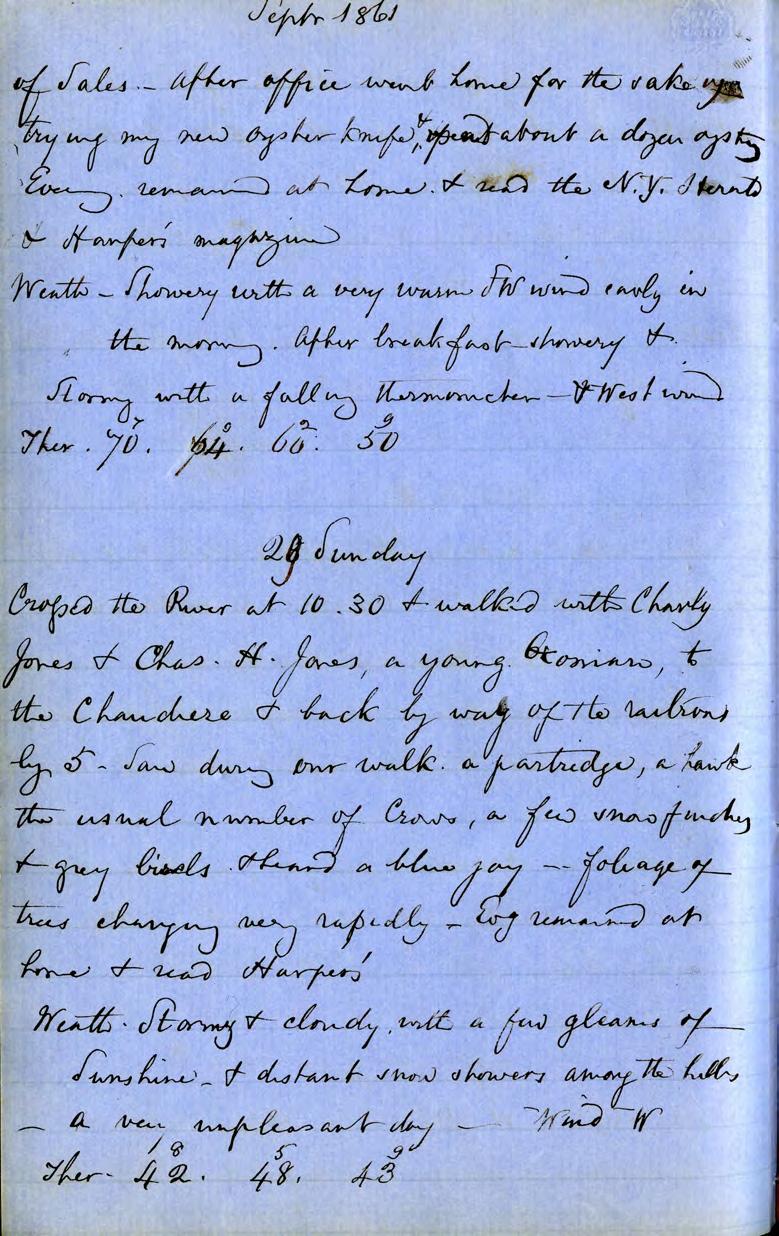 Septr 1861
of Sales - After office went home for the sake of
trying my new oyster knife, & opend about a dozen oysters
Eveng. remained at home & read the N.Y. Herald
& Harper's magazine
Weath - Showery with a very warm SW wind early in
the morng. After breakfast showery &
Stormy with a falling thermometer - & West wind
Ther. 70. 7 64. 9 60. 2 50 9
29 Sunday
Crossed the River at 10.30 & walked with Charly
Jones & Chas. H. Jones, a young Oxonian, to
the Chaudiere & back by way of the railroad
by 5 - Saw during our walk a partridge, a hawk
the usual number of Crows, a few snow finches
& grey birds & heard a blue jay - foliage of
trees changing very rapidly - Evg remained at
home & read Harper's
Weath. Stormy & cloudy, with a few gleams of
Sunshine - & distant snow showers among the hills
- a very unpleasant day - Wind W
Ther - 42. 8 48. 5 43 9